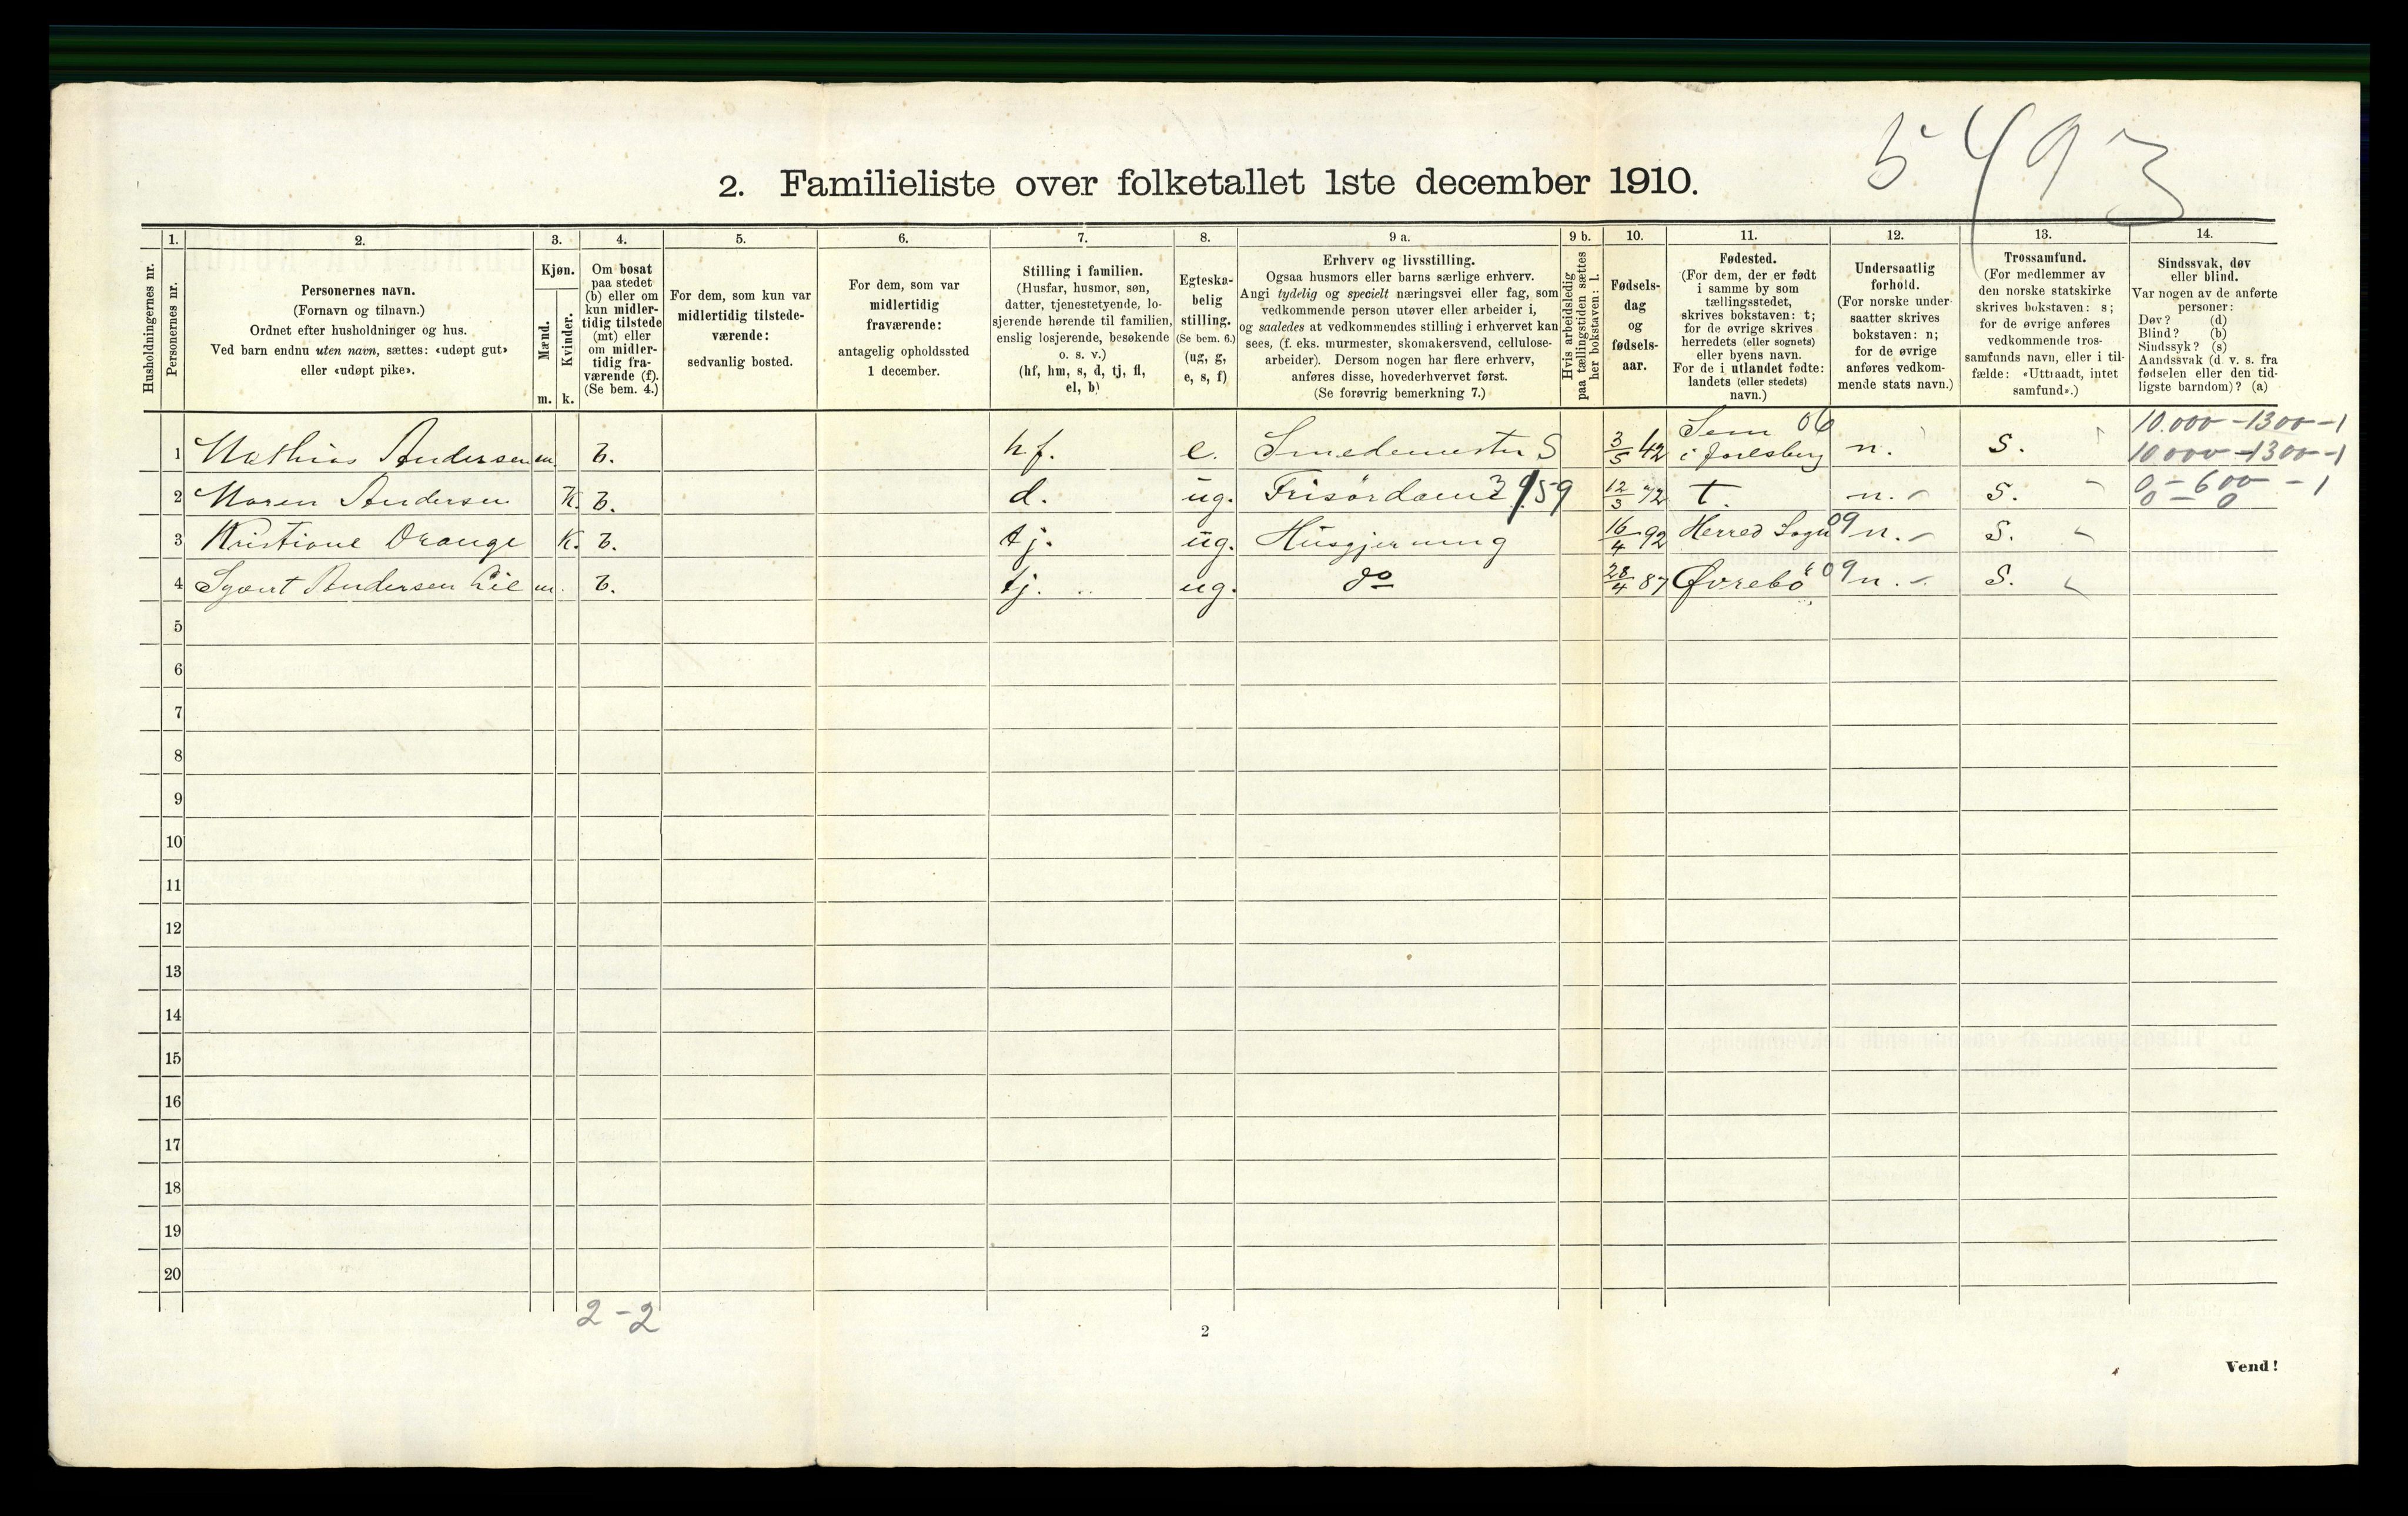 5493
2. Familieliste over folketallet 1ste december 1910.
1. 2. 3. 4. 5. 6. 7. 8. 9 a. 9 b. 10. 11. 12. 13. 14.
Husholdningernes nr.
Personernes nr.
Personernes navn.
(Fornavn og tilnavn.)
Ordnet efter husholdninger og hus.
Ved barn endnu uten navn, sættes: «udøpt gut»
eller «udøpt pike».
Kjøn.
Mænd.
Kvinder.
m. k.
Om bosat
paa stedet
(b) eller om
kun midler-
tidig tilstede
(mt) eller
om midler-
tidig fra-
værende (f).
(Se bem. 4.)
For dem, som kun var
midlertidig tilstede-
værende:
sedvanlig bosted.
For dem, som var
midlertidig
fraværende:
antagelig opholdssted
1 december.
Stilling i familien.
(Husfar, husmor, søn,
datter, tjenestetyende, lo-
sjerende hørende til familien,
enslig losjerende, besøkende
o. s. v.)
(hf, hm, s, d, tj, fl,
el, b)
Egteska-
belig
stilling.
(Se bem. 6.)
(ug, g,
e, s, f)
Erhverv og livsstilling.
Ogsaa husmors eller barns særlige erhverv.
Angi tydelig og specielt næringsvei eller fag, som
vedkommende person utøver eller arbeider i,
og saaledes at vedkommendes stilling i erhvervet kan
sees, (f. eks. murmester, skomakersvend, cellulose-
arbeider). Dersom nogen har flere erhverv,
anføres disse, hovederhvervet først.
(Se forøvrig bemerkning 7.)
Hvis arbeidsledig
paa tællingstiden sættes
her bokstaven: l.
Fødsels-
dag
og
fødsels-
aar.
Fødested.
(For dem, der er født
i samme by som
tællingsstedet,
skrives bokstaven: t;
for de øvrige skrives
herredets (eller sognets)
eller byens navn.
For de i utlandet fødte:
landets (eller stedets)
navn.)
Undersaatlig
forhold.
(For norske under-
saatter skrives
bokstaven: n;
for de øvrige
anføres vedkom-
mende stats navn.)
Trossamfund.
(For medlemmer av
den norske statskirke
skrives bokstaven: s;
for de øvrige anføres
vedkommende tros-
samfunds navn, eller i til-
fælde: «Uttraadt, intet
samfund».)
Sindssvak, døv
eller blind.
Var nogen av de anførte
personer:
Døv? (d)
Blind? (b)
Sindssyk? (s)
Aandssvak (d. v. s. fra
fødselen eller den tid-
ligste barndom)? (a)
1 Mathias Andersen m. b. hf. e. Smedemester S 3/5 42 Sem 06 i Jarlsberg n. S. 10.000-1300-1
10000-1300-1
2 Maren Andersen K. b. d. ug. Frisördame 3 9/59 12/3 72 t. n. S. 0-600-1
0-0
3 Kristiane Drange K. b. tj. ug. Husgjerning 16/4 92 Herred Sogn 09 n. S.
4 Andersen m. b. tj. ug. do 28/4 87 Øvrebö 09 n. S.
5
6
7
8
9
10
11
12
13
14
15
16
17
18
19
20
2-2
2
Vend!